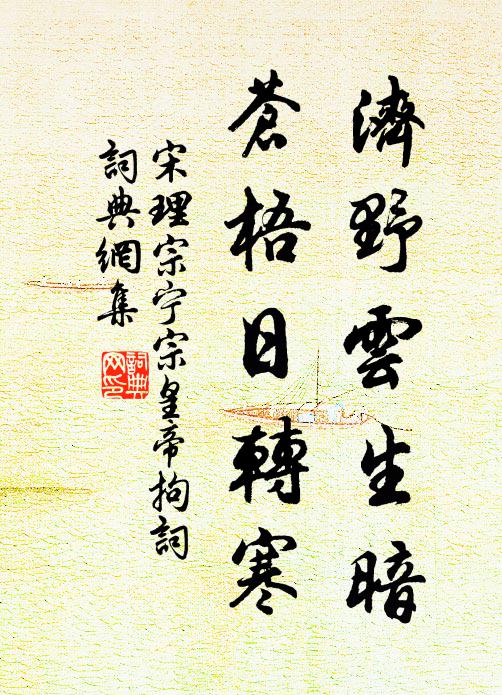 濟野雲生暗
蒼梧日轉寒
宋理宗宁宗皇帝拘詞
詞典網集
詞典
网印